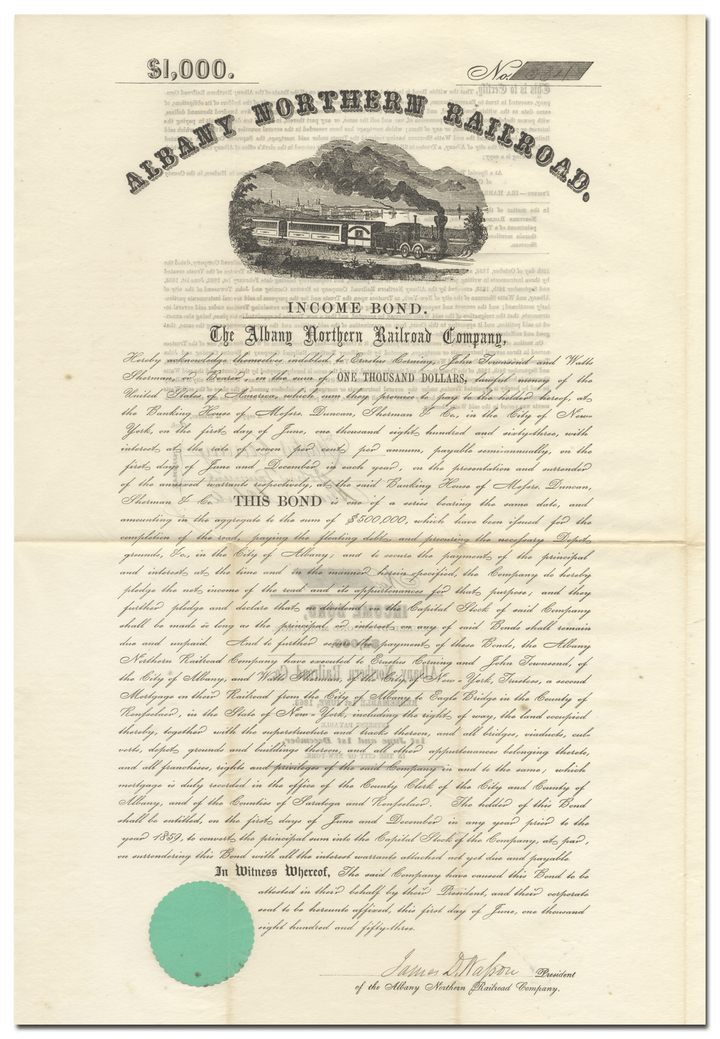 $1,000.
No.
ALBANY NORTHERN RAILROAD.
INCOME BOND.
The Albany Northern Railroad Company,
Hereby acknowledge themselves indebted to Erastus Corning, John Townsend and Watts
Sherman, or Bearer, in the sum of ONE THOUSAND DOLLARS, lawful money of the
United States of America, which sum they promise to pay to the holder hereof, at
the Banking House of Messrs. Duncan, Sherman & Co., in the City of New-
York, on the first day of June, one thousand eight hundred and sixty-three, with
interest at the rate of seven per cent per annum, payable semi-annually, on the
first days of June and December in each year, on the presentation and surrender
of the annexed warrants respectively, at the said Banking House of Messrs. Duncan,
Sherman & Co. THIS BOND is one of a series bearing the same date, and
amounting in the aggregate to the sum of $500,000, which have been issued for the
completion of the road, paying the floating debt, and procuring the necessary Depot
grounds, &c., in the City of Albany; and to secure the payment of the principal
and interest at the time and in the manner herein specified, the Company do hereby
pledge the net income of the road and its appurtenances for that purpose; and they
further pledge and declare that no dividend on the Capital Stock of said Company
shall be made so long as the principal or interest on any of said Bonds shall remain
due and unpaid. And to further secure the payment of these Bonds, the Albany
Northern Railroad Company have executed to Erastus Corning and John Townsend, of
the City of Albany, and Watts Sherman, of the City of New-York, Trustees, a second
Mortgage on their Railroad from the City of Albany to Eagle Bridge in the County of
Rensselaer, in the State of New-York, including the right of way, the land occupied
thereby, together with the superstructure and tracks thereon, and all bridges, viaducts, cul-
verts, depot grounds and buildings thereon, and all other appurtenances belonging thereto,
and all franchises, rights and privileges of the said Company in and to the same; which
mortgage is duly recorded in the office of the County Clerk of the City and County of
Albany, and of the Counties of Saratoga and Rensselaer. The holder of this Bond
shall be entitled, on the first days of June and December in any year prior to the
year 1859, to convert the principal sum into the Capital Stock of the Company, at par,
on surrendering this Bond with all the interest warrants attached not yet due and payable.
In Witness Whereof, The said Company have caused this Bond to be
attested in their behalf by their President, and their corporate
seal to be hereunto affixed, this first day of June, one thousand
eight hundred and fifty-three.
James D. Wasson President
of the Albany Northern Railroad Company.